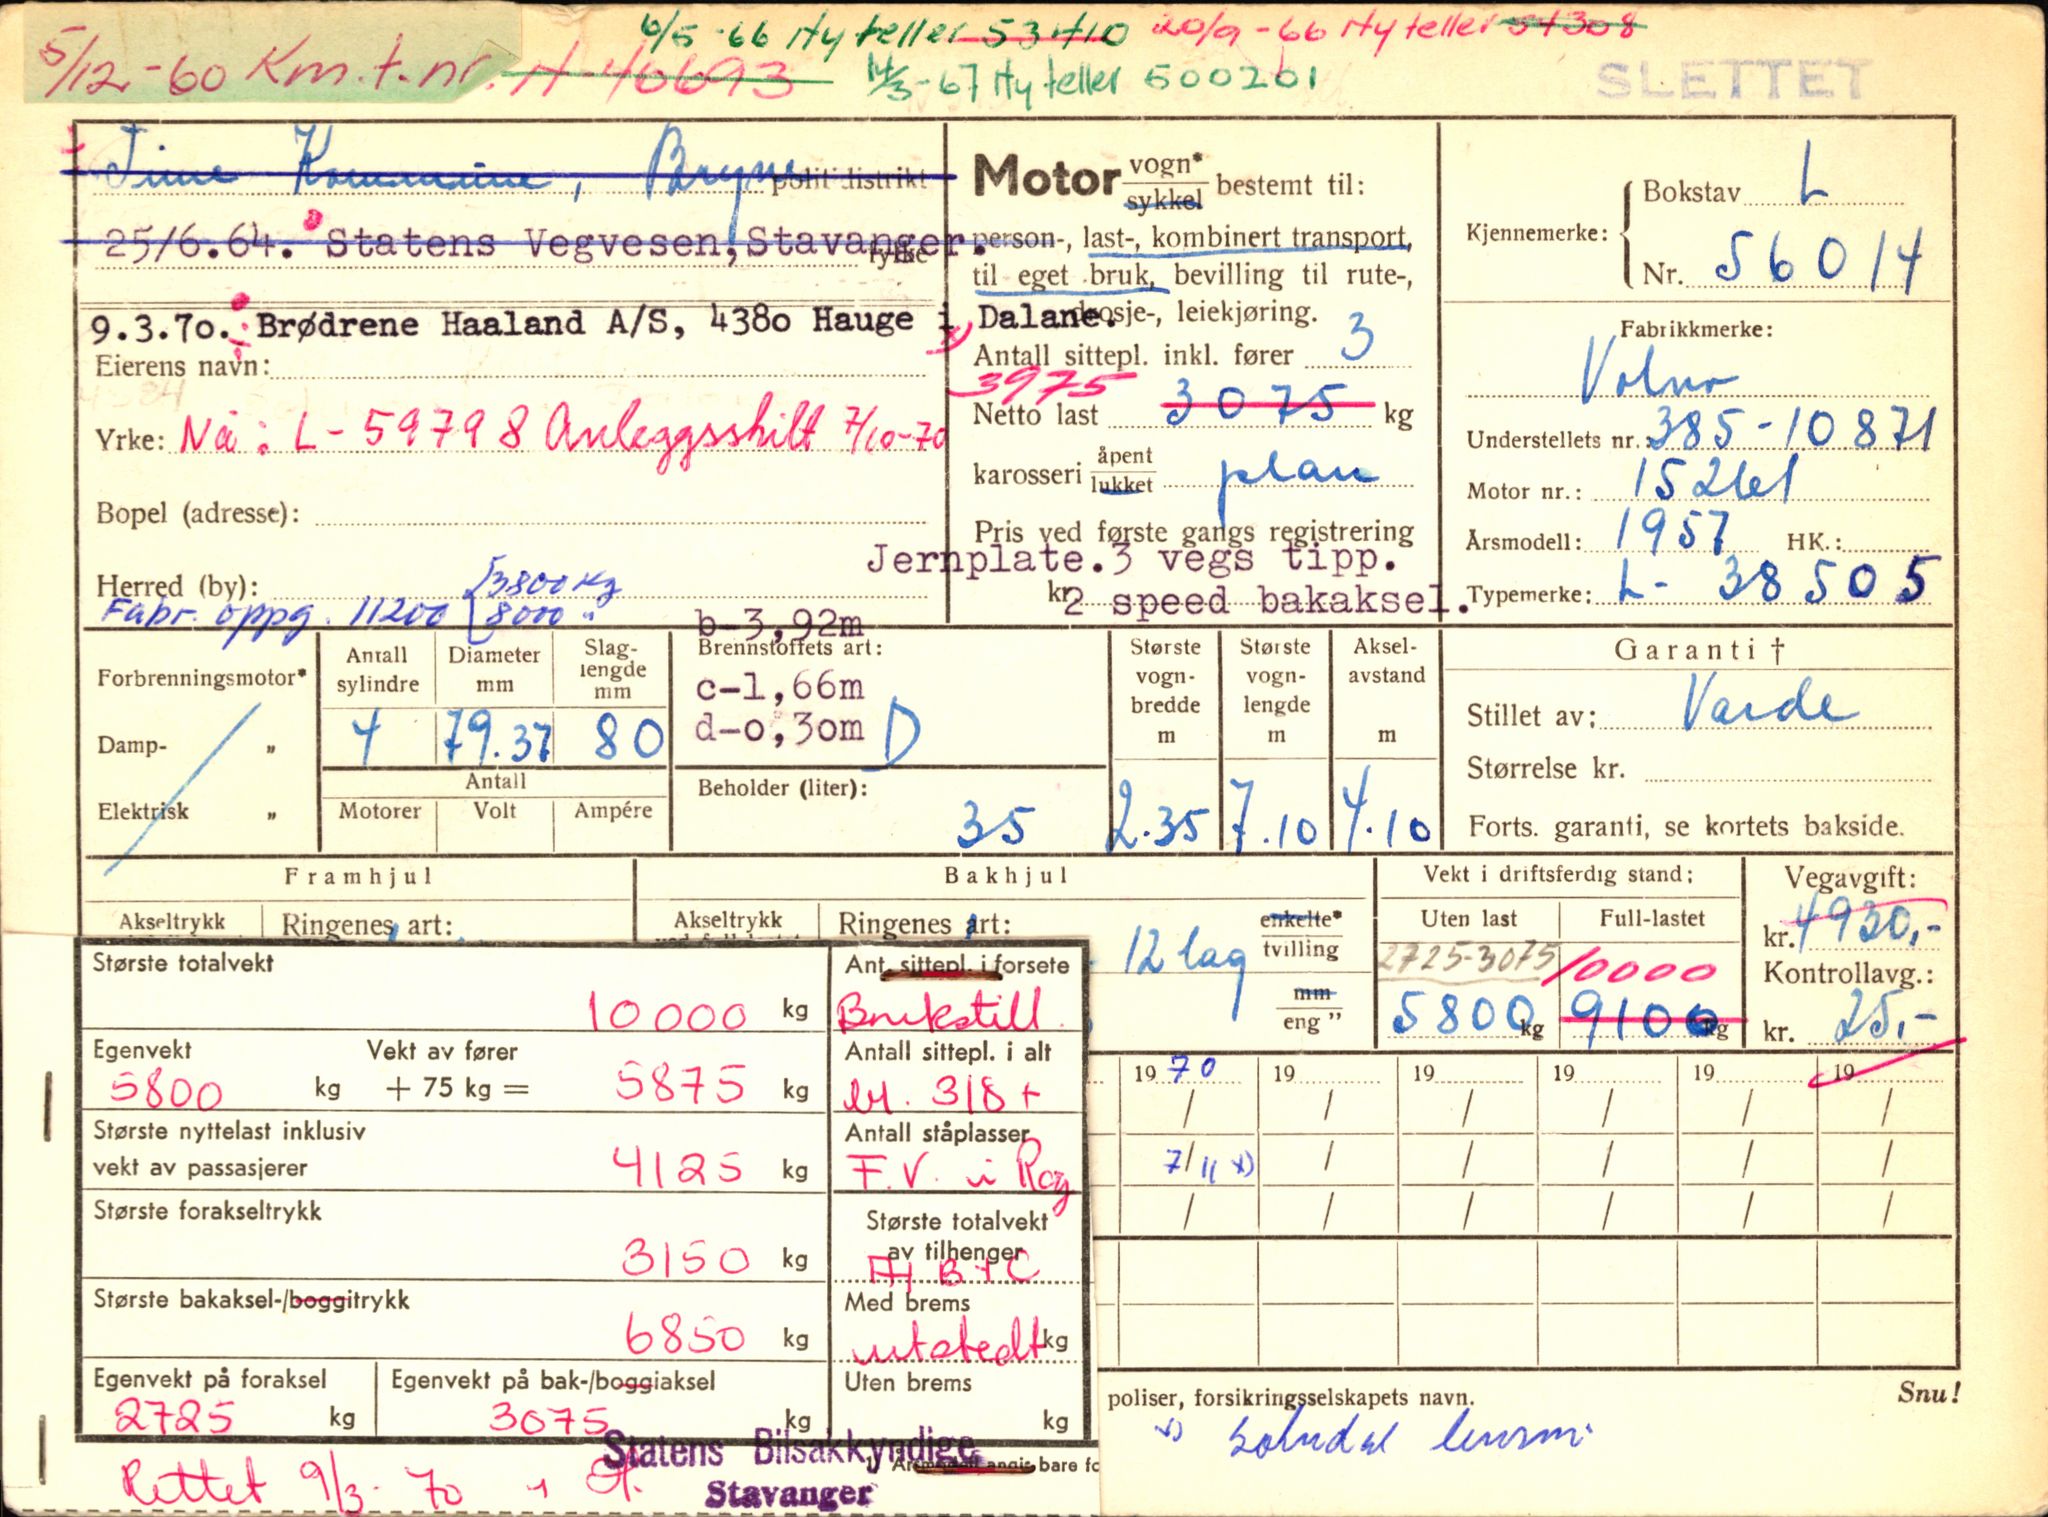 6/5-66 Ny teller 53410 20/9-66 Ny teller 54308
5/12-60 Km.t.nr. A 40693 14/3-67 Ny teller 500201
SLETTET
Time Kommune, Bryne politidistrikt
25/6.64. Statens Vegvesen, Stavanger.
fylke
9.3.70. Brødrene Haaland A/S, 4380 Hauge i Dalane.
Eierens navn:
Yrke: Nå: L-59798 Anleggsskilt 7/10-70
Bopel (adresse):
Herred (by):
Fabr. oppg. 11200 3800 kg
8000 "
Motor vogn* sykkel bestemt til:
person-, last-, kombinert transport,
til eget bruk, bevilling til rute-,
drosje-, leiekjøring.
Antall sittepl. inkl. fører 3
3975
Netto last 3075 kg
karosseri åpent lukket plan
Pris ved første gangs registrering
Jernplate. 3 vegs tipp.
kr.
2 speed bakaksel.
Kjennemerke: Bokstav L
Nr. 56014
Fabrikkmerke:
Volvo
Understellets nr.: 385-10871
Motor nr.:
Årsmodell: 1957 HK.:
Typemerke: L-38505
Forbrenningsmotor*
Damp- "
Elektrisk "
Antall sylindre
4
Diameter mm
79.37
Slaglengde mm
80
Antall
Motorer Volt Ampére
b-3,92m
Brennstoffets art:
c-1,66m
d-0,30m D
Beholder (liter):
35
Største vognbredde m
2.35
Største vognlengde m
7.10
Akselavstand m
4.10
Garanti †
Stillet av: Varde
Størrelse kr.
Forts. garanti, se kortets bakside.
Framhjul
Akseltrykk Ringenes art:
Bakhjul
Akseltrykk Ringenes art:
12 lag
enkelte* tvilling
mm eng"
Vekt i driftsferdig stand:
Uten last Full-lastet
2725-3075 10000
5800 kg 9100 kg
Vegavgift:
kr. 4930,-
Kontrollavg.:
kr. 25,-
Største totalvekt
10000 kg
Egenvekt Vekt av fører
5800 kg + 75 kg = 5875 kg
Største nyttelast inklusiv
vekt av passasjerer 4125 kg
Største forakseltrykk
3150 kg
Største bakaksel-/boggitrykk
6850 kg
Egenvekt på foraksel
2725 kg
Egenvekt på bak-/boggiaksel
3075 kg
Ant. sittepl. i forsete
Brukstill.
Antall sittepl. i alt
bl. 318 +
Antall ståplasser
F.V. i Rog
Største totalvekt
av tilhenger
A, B + C
Med brems
utstedt kg
Uten brems
kg
19 70 19 19 19 19 19
/ / / / / /
7/11 x) / / / / /
/ / / / / /
poliser, forsikringsselskapets navn.
Snu!
x)
Rettet 9/3-70
Statens Bilsakkyndige
Stavanger
Årsmodell angis bare fo